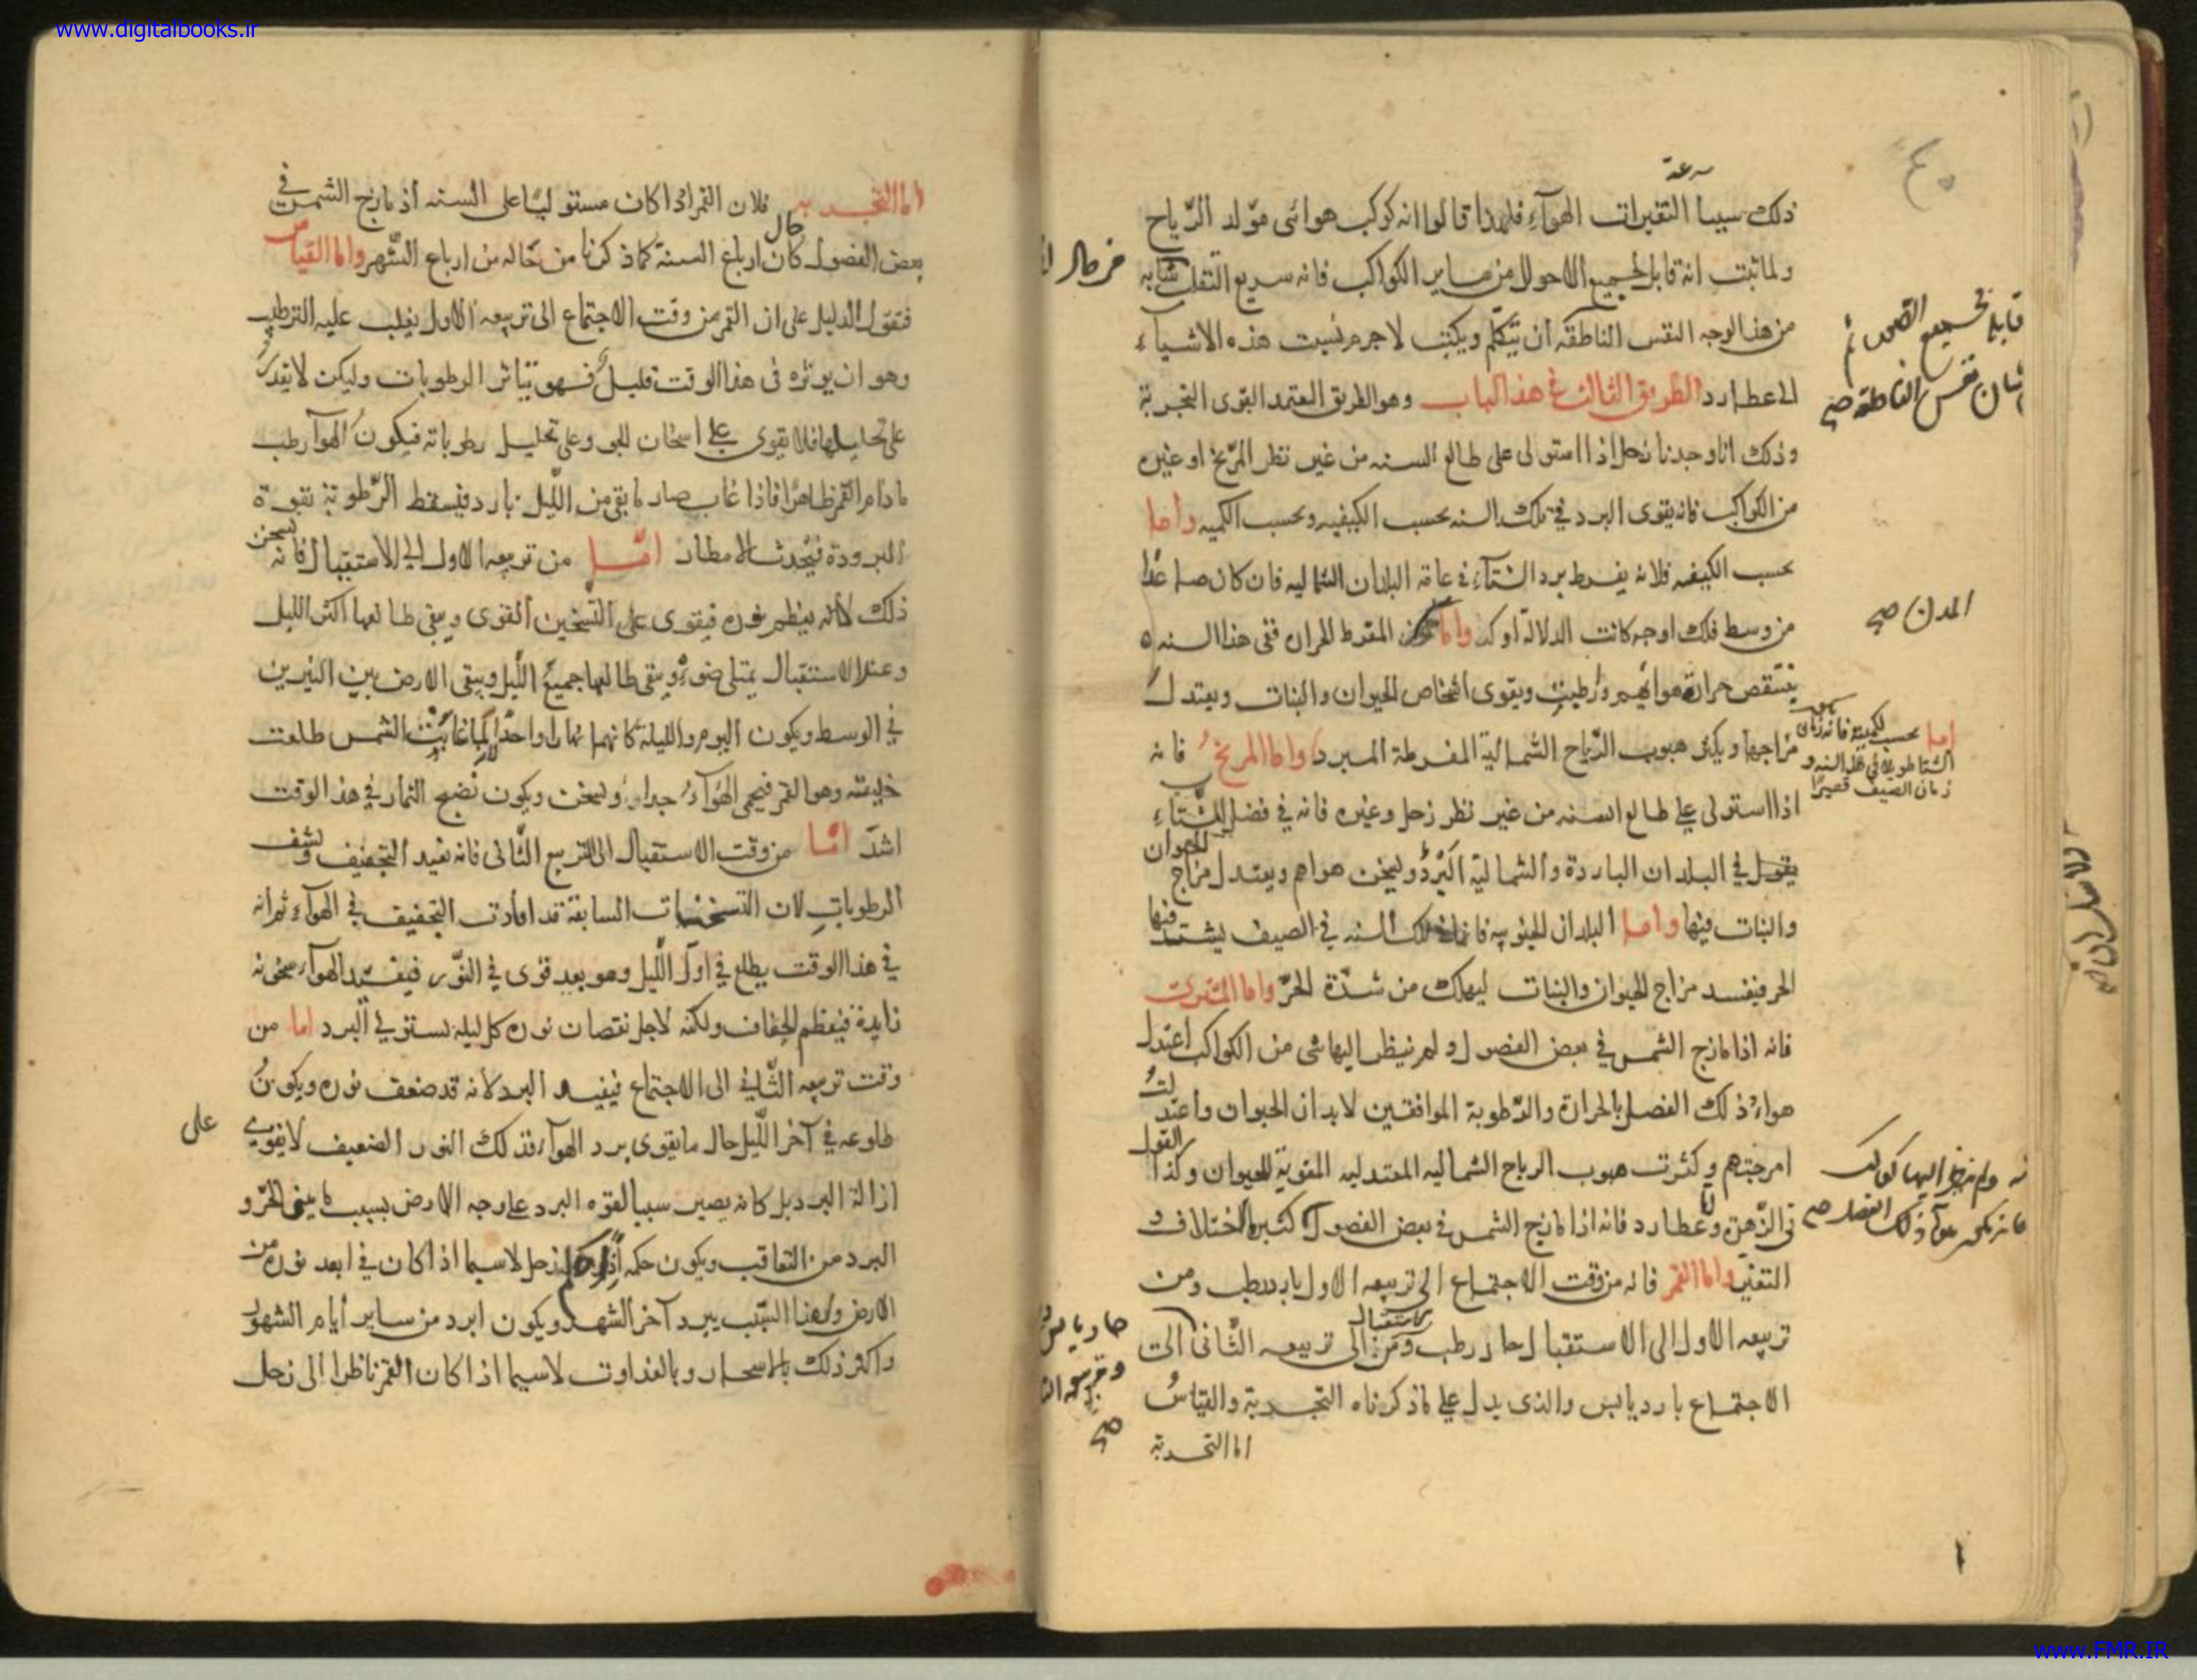 www.digitalbooks.ir
سرعة
ذلك سببا التغيرات الهوآء فلهذا قالوا انه كوكب هوائى مولد الرّياح
ولما ثبت انه قابل لجميع الاحوال من ساير الكواكب فانه سريع التقلب
من هذا الوجه النفس الناطقه ان تتكلّم ويكتب لاجرم نسبت هذه الاشياء
الى عطارد الطريق الثالث فى هذا الباب وهو الطريق المعتمد القوى التجربة
وذلك انا وجدنا زحل اذا استولى على طالع السنه من غير نظر المرّيخ او غيره
من الكواكب فانه يقوى البرد فى تلك السنه بحسب الكيفيه وبحسب الكميه واما
بحسب الكيفيه فلانه يفرط برد الشتآء فى عامّة البلدان الشماليه فان كان صاعدا
من وسط فلك اوجه كانت الدلالة اوكد واما المفرط الحران ففى هذا السنه
ينتقص حرارة هوائهم ويقوى اشخاص الحيوان والنبات ويعتدل
مزاجها ويكثر هبوب الرّياح الشمالية المفرطة المبرد واما المريخ فانه
اذا استولى على طالع السنه من غير نظر زحل وغيره فانه فى فصل الشّتاء
للحيوان
يقول فى البلدان الباردة والشمالية البرد وليسخن هواهم ويعتدل مزاج
والنبات فيها واما البلدان الجنوبيه فان فى تلك السنه فى الصيف يشتد فيها
الحر فيفسد مزاج الحيوان والنبات ليهلك من شدّة الحرّ واما المشترى
فانه اذا مازج الشمس فى بعض الفصول ولم ينظر اليها شى من الكواكب اعتدل
هواء ذلك الفصل بالحرارة والرّطوبة الموافقين لابدان الحيوان واعتدلت
امرجتهم وكثرت هبوب الرياح الشماليه المعتدليه المقوية للحيوان وكذا القول
فى الزّهرة واما عطارد فانه اذا مازج الشمس فى بعض الفصول كثيرة الاختلاف و
التغير واما القمر فانه من وقت الاجتماع الى تربيعه الاول بارد رطب ومن
تربيعه الاول الى الاستقبال حار رطب ومن الاستقبال الى تربيعه الثّانى الى
الاجتماع بارد يابس والذى يدل على ما ذكرناه التجربة والقياس
اما التجربة
المدن صح
اما بحسب الكميّة فانه زمان
الشتا طويلا فى هذا السنه و
زمان الصيف قصيرا
ولم ينظر اليها كوكب
حار يابس
صح
اما التجربه فلان القمر اذا كان مستوليا على السنه اذ مازج الشمس فى
بعض الفصول كان حال ارباع السنة كما ذكرنا من حاله من ارباع الشّهر واما القياس
فنقول الدليل على ان القمر من وقت الاجتماع الى تربيعه الاول يغلب عليه الترطيب
وهو ان يوثره فى هذا الوقت قليل فهو يتاثر الرطوبات وليكن لا يقدر
على تحليلها فلا يقوى على اسخان الجو وعلى تحليل رطوباته فيكون الهوآ رطب
ما دام القمر ظاهرا فاذا غاب صار ما بقى من اللّيل بارد فيسقط الرّطوبة بقوة
البرودة فيحدث الامطار امّا من تربيعه الاول الى الاستقبال فانه يسخن
ذلك لانه يعظم نوره فيقوى على التّسخين القوى ويبقى طالعها اكثر الليل
وعند الاستقبال يمتلى ضوءه ويبقى طالعها جميع اللّيل ويبقى الارض بين النيرين
فى الوسط ويكون اليوم والليلة كانهما نهارا واحدا كما غابت الشمس طلعت
خليفته وهو القمر فيحمى الهوآء جدا ويسخن ويكون نضج الثمار فى هذ الوقت
اشدّ امّا من وقت الاستقبال الى التربيع الثّانى فانه يفيد التجفيف ونشف
الرطوبات لان التسخينات السابقة قد افادت التجفيف فى الهوآء ثم انه
فى هذا الوقت يطلع فى اوّل اللّيل وهو بعد قوى فى النّور فيفيد الهوآء سخونه
زايدة فيعظم الجفاف ولكنه لاجل نقصان نوره كل ليله يستوفى البرد اما من
وقت تربيعه الثّانى الى الاجتماع فيفيد البرد لانه قد ضعف نوره ويكون
طلوعه فى آخر اللّيل حال ما يقوى برد الهوآء فذلك النور الضعيف لا يقوى على
ازالة البرد بل كانه يصير سببا لقوه البرد على وجه الارض بسبب ما بين الحرّ و
البرد من التعاقب ويكون حكمه زحل لاسيما اذا كان فى ابعد نوره من
الارض ولهذا السّبب يبرد آخر الشهر ويكون ابرد من ساير ايام الشهور
واكثر ذلك بالاسحار وبالغداوت لاسيما اذا كان القمر ناظرا الى زحل
www.FMR.IR